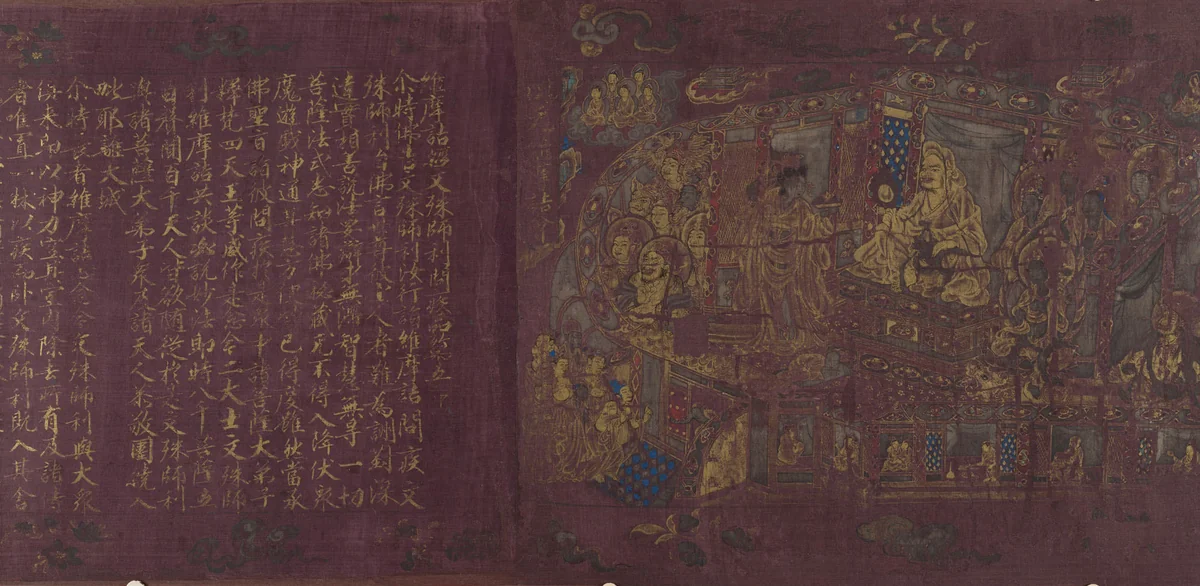 維摩詰經文殊師利問疾品第五
尒時佛告文殊師利汝行詣維摩詰問疾文
殊師利白佛言世尊彼上人者難為詶對深
達實相善說法要辯才無滯智慧無㝵一切
菩薩法式悉知諸佛秘藏无不得入降伏眾
魔遊戲神通其慧方便皆已得度雖然當承
佛聖旨詣彼問疾於是眾中諸菩薩大弟子
釋梵四天王等咸作是念今二大士文殊師
利維摩詰共談必說妙法即時八千菩薩五
百聲聞百千天人皆欲隨從於是文殊師利
與諸菩薩大弟子眾及諸天人恭敬圍繞入
毗耶離大城
尒時長者維摩詰心念今文殊師利與大眾
俱來即以神力空其室內除去所有及諸侍
者唯置一床以疾而卧文殊師利既入其舍